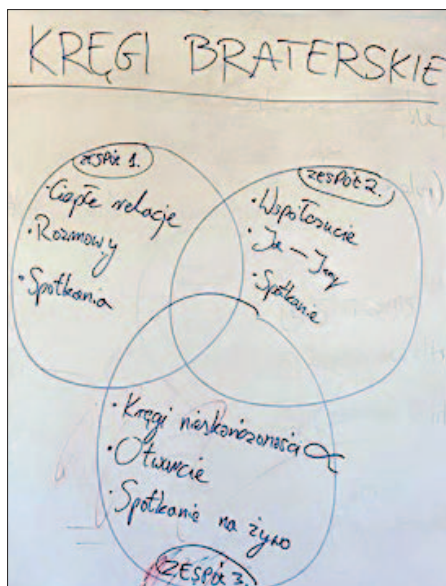 KRĘGI BRATERSKIE
ZESPÓŁ 1.
• Ciepłe relacje
• Rozmowy
• Spotkania
ZESPÓŁ 2.
• Współczucie
• Ja – Inny
• Spotkanie
• Kręgi nieskończoności
• Otwarcie
• Spotkanie na żywo
ZESPÓŁ 3.